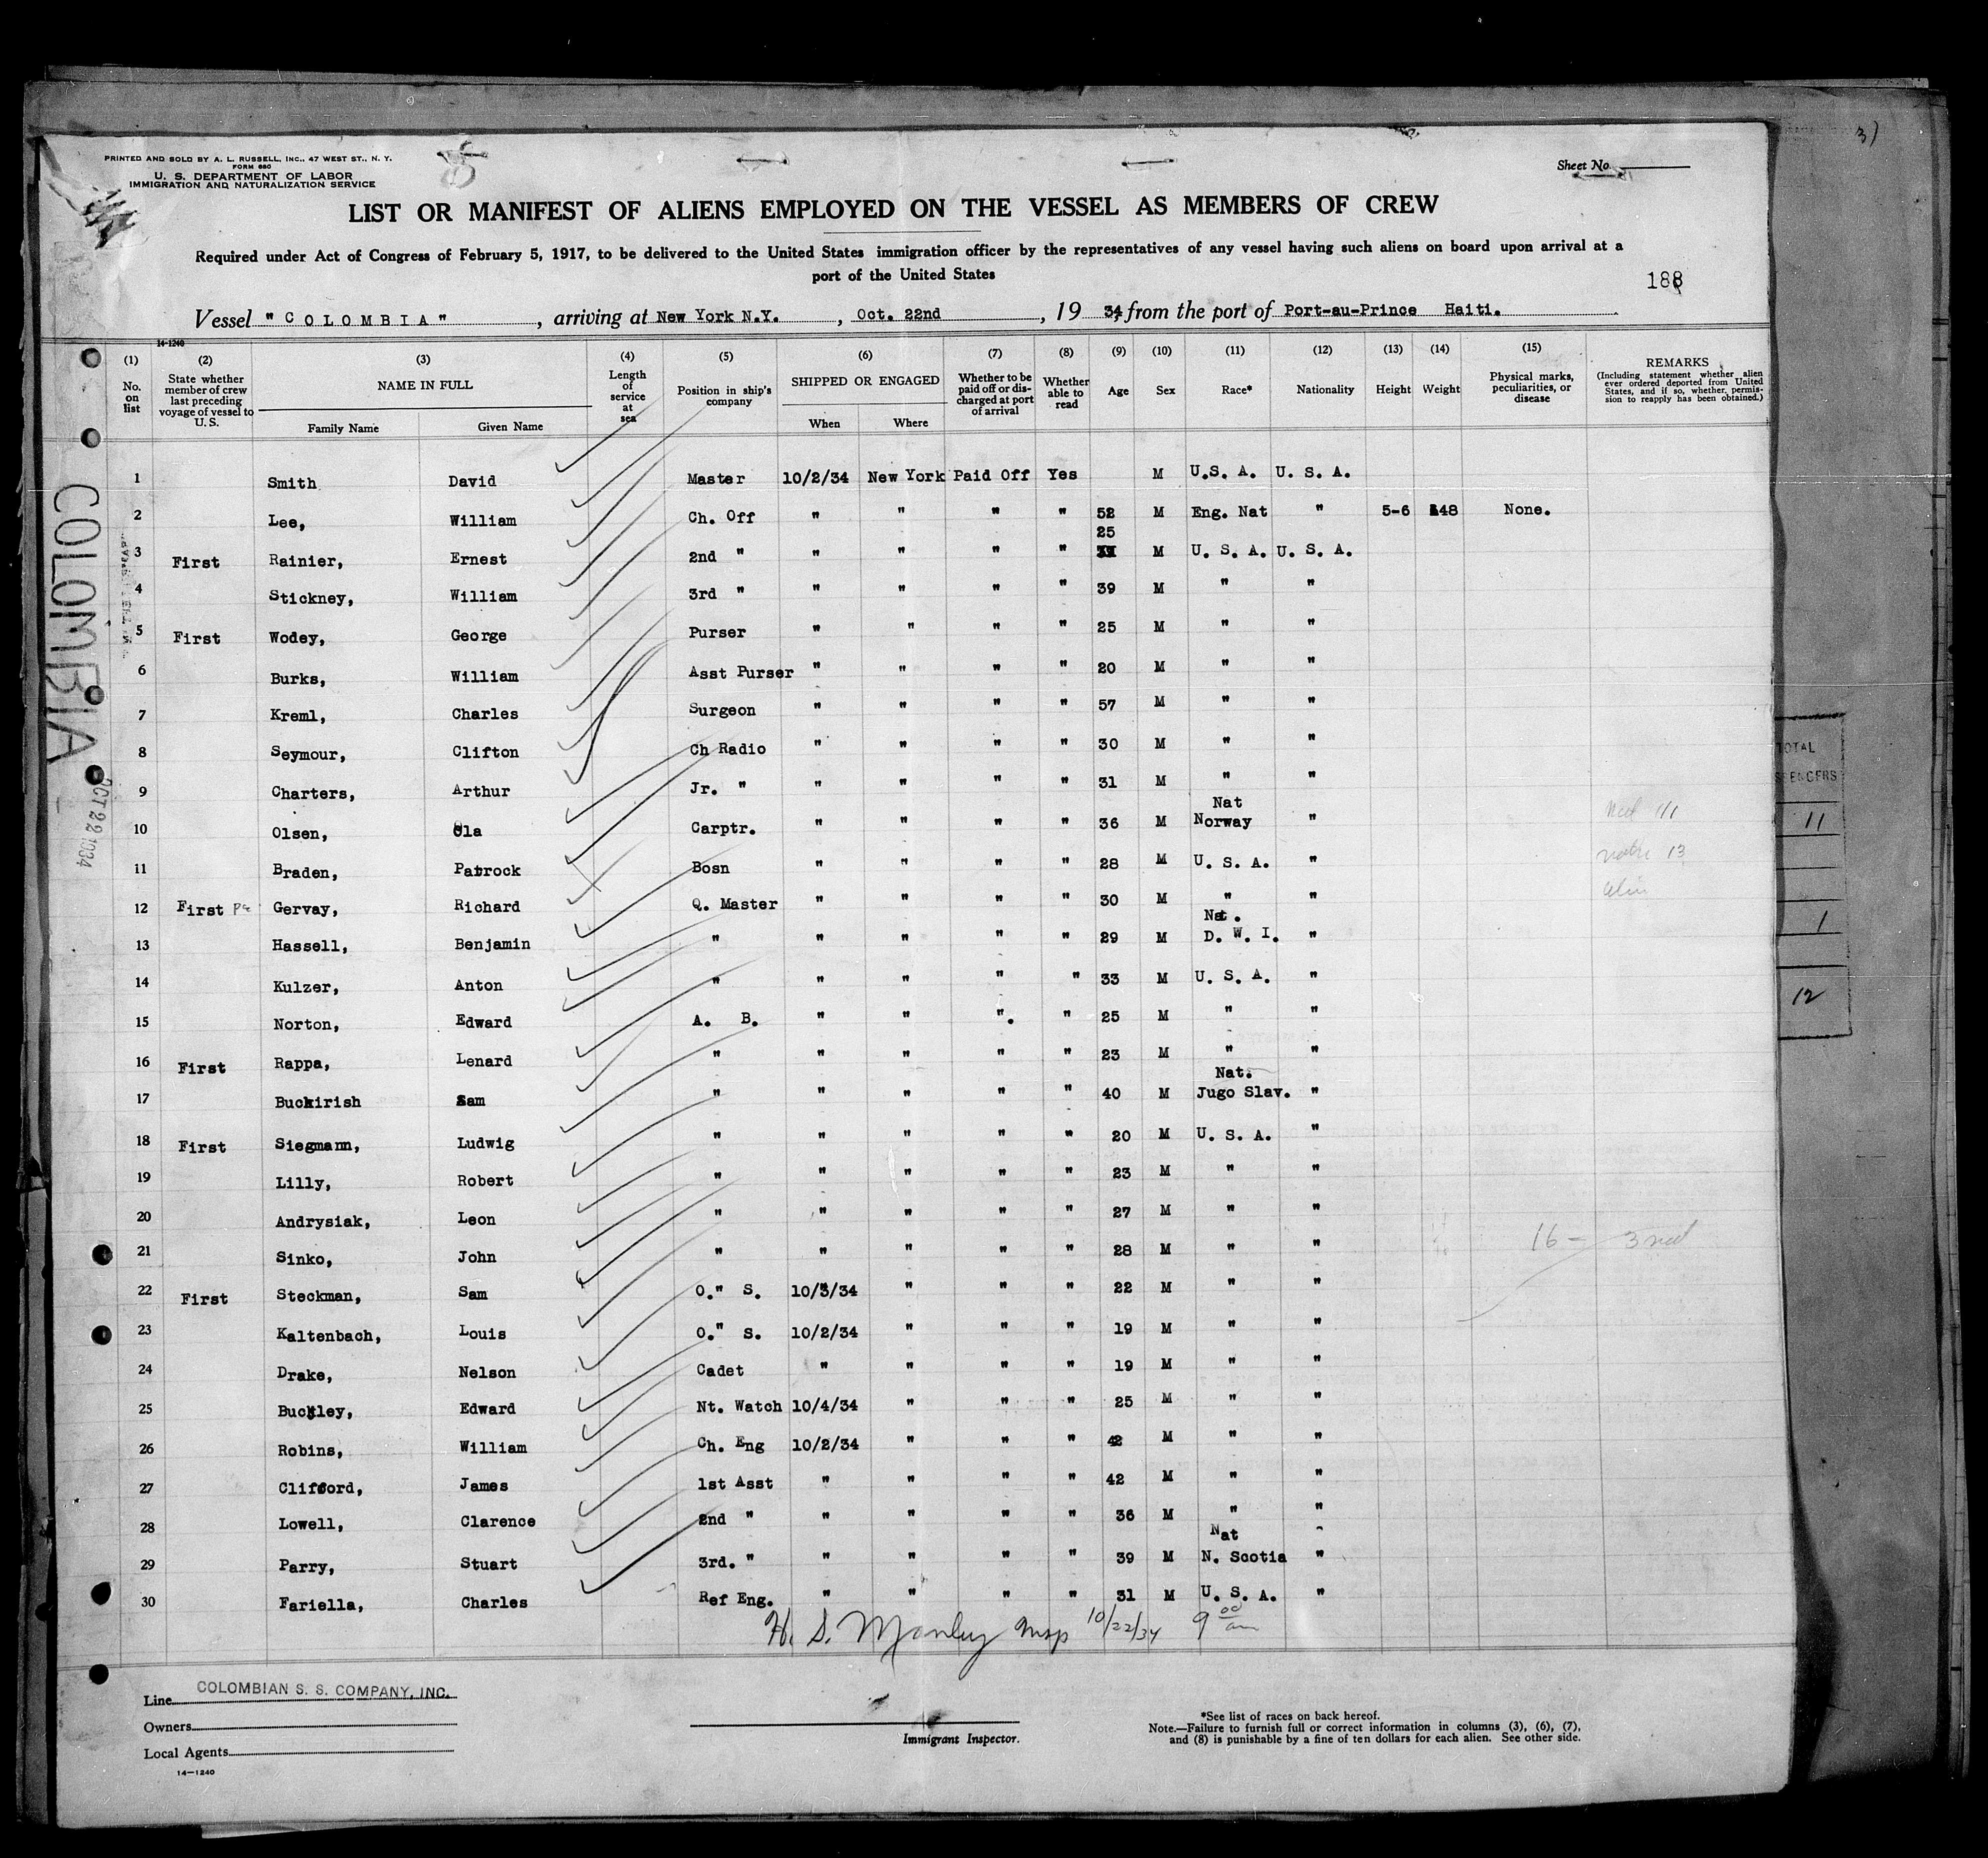 PRINTED AND SOLD BY A. L. RUSSELL, INC., 47 WEST ST., N. Y.
FORM 680
U. S. DEPARTMENT OF LABOR
IMMIGRATION AND NATURALIZATION SERVICE
Sheet No.
LIST OR MANIFEST OF ALIENS EMPLOYED ON THE VESSEL AS MEMBERS OF CREW
Required under Act of Congress of February 5, 1917, to be delivered to the United States immigration officer by the representatives of any vessel having such aliens on board upon arrival at a
port of the United States
188
Vessel "COLOMBIA", arriving at New York N.Y., Oct. 22nd, 19 34, from the port of Port-au-Prince Haiti.
14-1240
(1) (2) (3) (4) (5) (6) (7) (8) (9) (10) (11) (12) (13) (14) (15)
No. on list
State whether member of crew last preceding voyage of vessel to U. S.
NAME IN FULL
Family Name
Given Name
Length of service at sea
Position in ship's company
SHIPPED OR ENGAGED
When
Where
Whether to be paid off or discharged at port of arrival
Whether able to read
Age
Sex
Race*
Nationality
Height
Weight
Physical marks, peculiarities, or disease
REMARKS
(Including statement whether alien ever ordered deported from United States, and if so, whether, permission to reapply has been obtained.)
1 Smith David Master 10/2/34 New York Paid Off Yes M U.S. A. U. S. A.
2 Lee, William Ch. Off " " " " 52 M Eng. Nat " 5-6 148 None.
3 First Rainier, Ernest 2nd " " " " " 25 M U. S. A. U. S. A.
4 Stickney, William 3rd " " " " " 39 M " "
5 First Wodey, George Purser " " " " 25 M " "
6 Burks, William Asst Purser " " " " 20 M " "
7 Kreml, Charles Surgeon " " " " 57 M " "
8 Seymour, Clifton Ch Radio " " " " 30 M " "
9 Charters, Arthur Jr. " " " " " 31 M " "
10 Olsen, Ola Carptr. " " " " 36 M Nat Norway "
11 Braden, Patrock Bosn " " " " 28 M U. S. A. "
12 First Gervay, Richard Q. Master " " " " 30 M " "
13 Hassell, Benjamin " " " " " 29 M Nat. D. W. I. "
14 Kulzer, Anton " " " " " 33 M U. S. A. "
15 Norton, Edward A. B. " " " " 25 M " "
16 First Rappa, Lenard " " " " " 23 M " "
17 Buckirish Sam " " " " " 40 M Nat. Jugo Slav. "
18 First Siegmann, Ludwig " " " " " 20 M U. S. A. "
19 Lilly, Robert " " " " " 23 M " "
20 Andrysiak, Leon " " " " " 27 M " "
21 Sinko, John " " " " " 28 M " "
22 First Steckman, Sam O." S. 10/3/34 " " " 22 M " "
23 Kaltenbach, Louis O." S. 10/2/34 " " " 19 M " "
24 Drake, Nelson Cadet " " " " 19 M " "
25 Buckley, Edward Nt. Watch 10/4/34 " " " 25 M " "
26 Robins, William Ch. Eng 10/2/34 " " " 42 M " "
27 Clifford, James 1st Asst " " " " 42 M " "
28 Lowell, Clarence 2nd " " " " " 36 M " "
29 Parry, Stuart 3rd. " " " " " 39 M Nat N. Scotia "
30 Fariella, Charles Ref Eng. " " " " 31 M U. S. A. "
H. S. Manley Insp 10/22/34 9 00 am
COLOMBIA
OCT 22 1934
16 -
TOTAL
11
1
12
Line COLOMBIAN S. S. COMPANY, INC.
Owners
Local Agents
14—1240
Immigrant Inspector.
*See list of races on back hereof.
Note.—Failure to furnish full or correct information in columns (3), (6), (7),
and (8) is punishable by a fine of ten dollars for each alien. See other side.